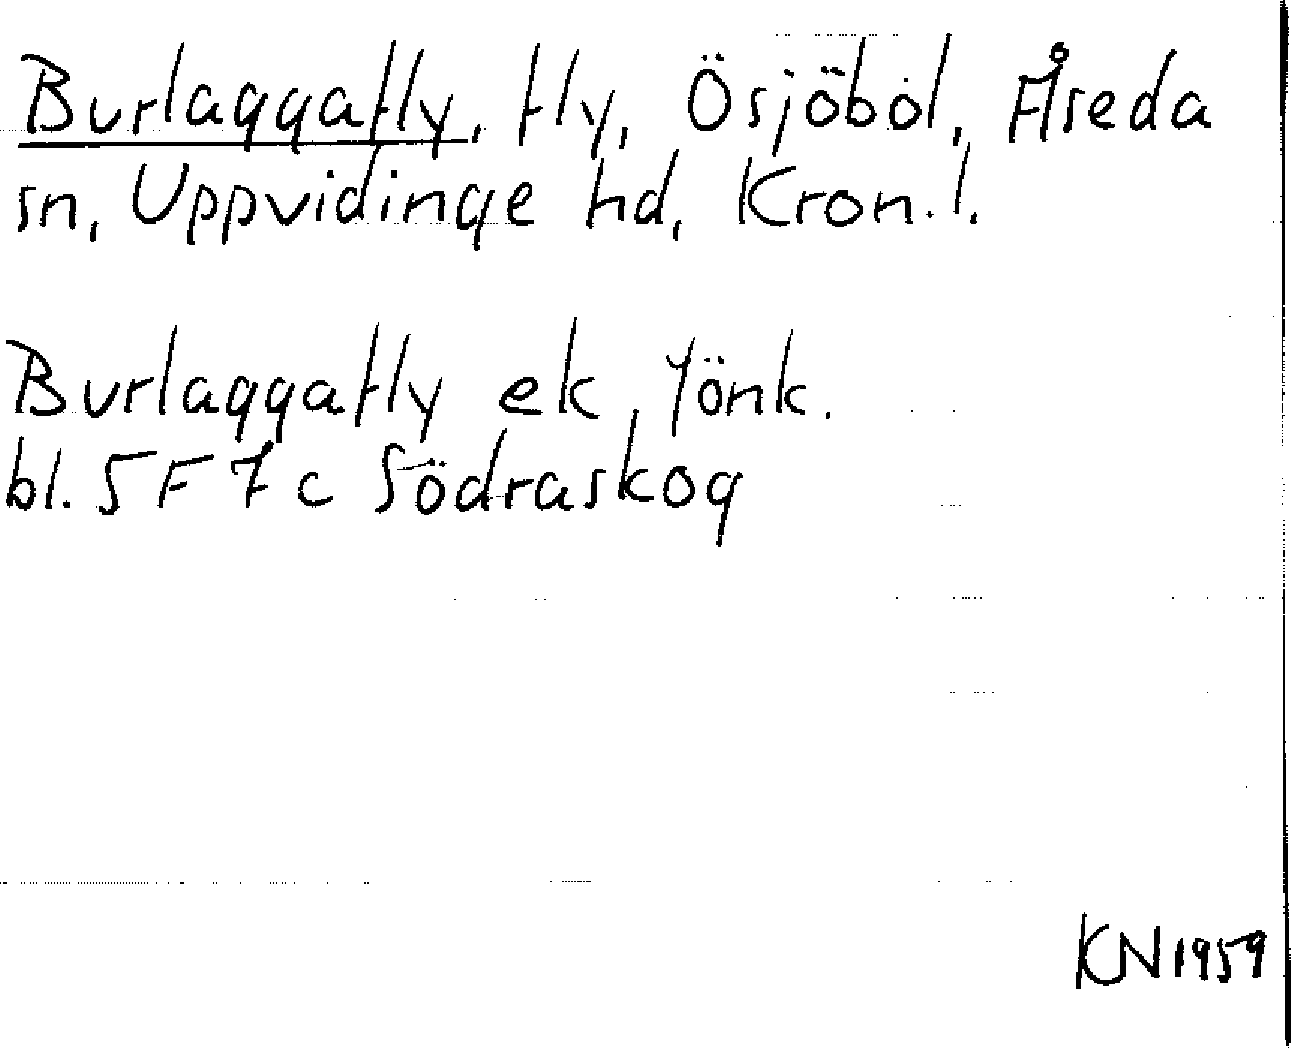 Burlaggafly, fly, Ösjöbol, Åseda
sn, Uppvidinge hd, Kron.l.
Burlaggafly ek, Jönk.
bl. 5F 7c Södraskog
KN1959